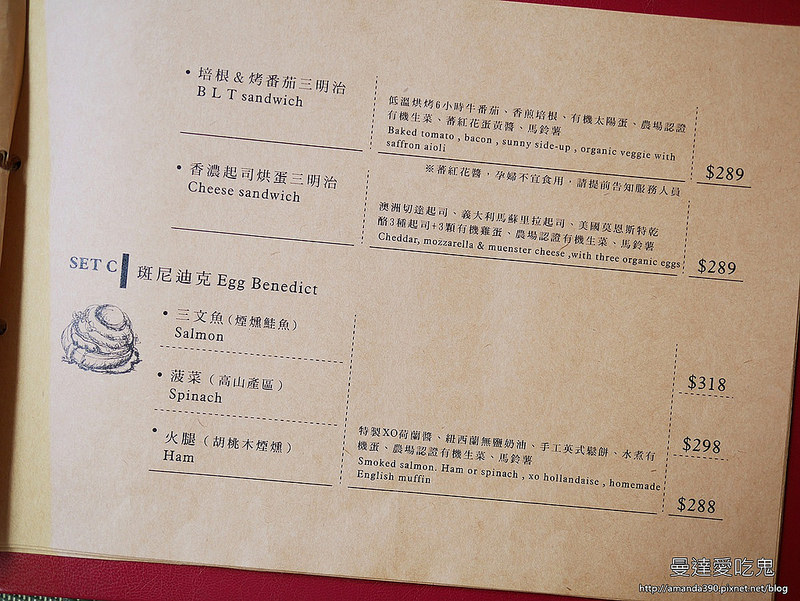 • 培根＆烤番茄三明治
B L T sandwich
低溫烘烤6小時牛番茄、香煎培根、有機太陽蛋、農場認證
有機生菜、蕃紅花蛋黃醬、馬鈴薯
Baked tomato , bacon , sunny side-up , organic veggie with
saffron aioli
$289
※蕃紅花醬，孕婦不宜食用，請提前告知服務人員
• 香濃起司烘蛋三明治
Cheese sandwich
澳洲切達起司、義大利馬蘇里拉起司、美國莫恩斯特乾
酪3種起司+3顆有機雞蛋、農場認證有機生菜、馬鈴薯
Cheddar, mozzarella & muenster cheese ,with three organic eggs
$289
SET C
班尼迪克 Egg Benedict
• 三文魚（煙燻鮭魚）
Salmon
$318
• 菠菜（高山產區）
Spinach
$298
• 火腿（胡桃木煙燻）
Ham
特製XO荷蘭醬、紐西蘭無鹽奶油、手工英式鬆餅、水煮有
機蛋、農場認證有機生菜、馬鈴薯
Smoked salmon. Ham or spinach , xo hollandaise , homemade
English muffin
$288
曼達愛吃鬼
http://amanda390.pixnet.net/blog